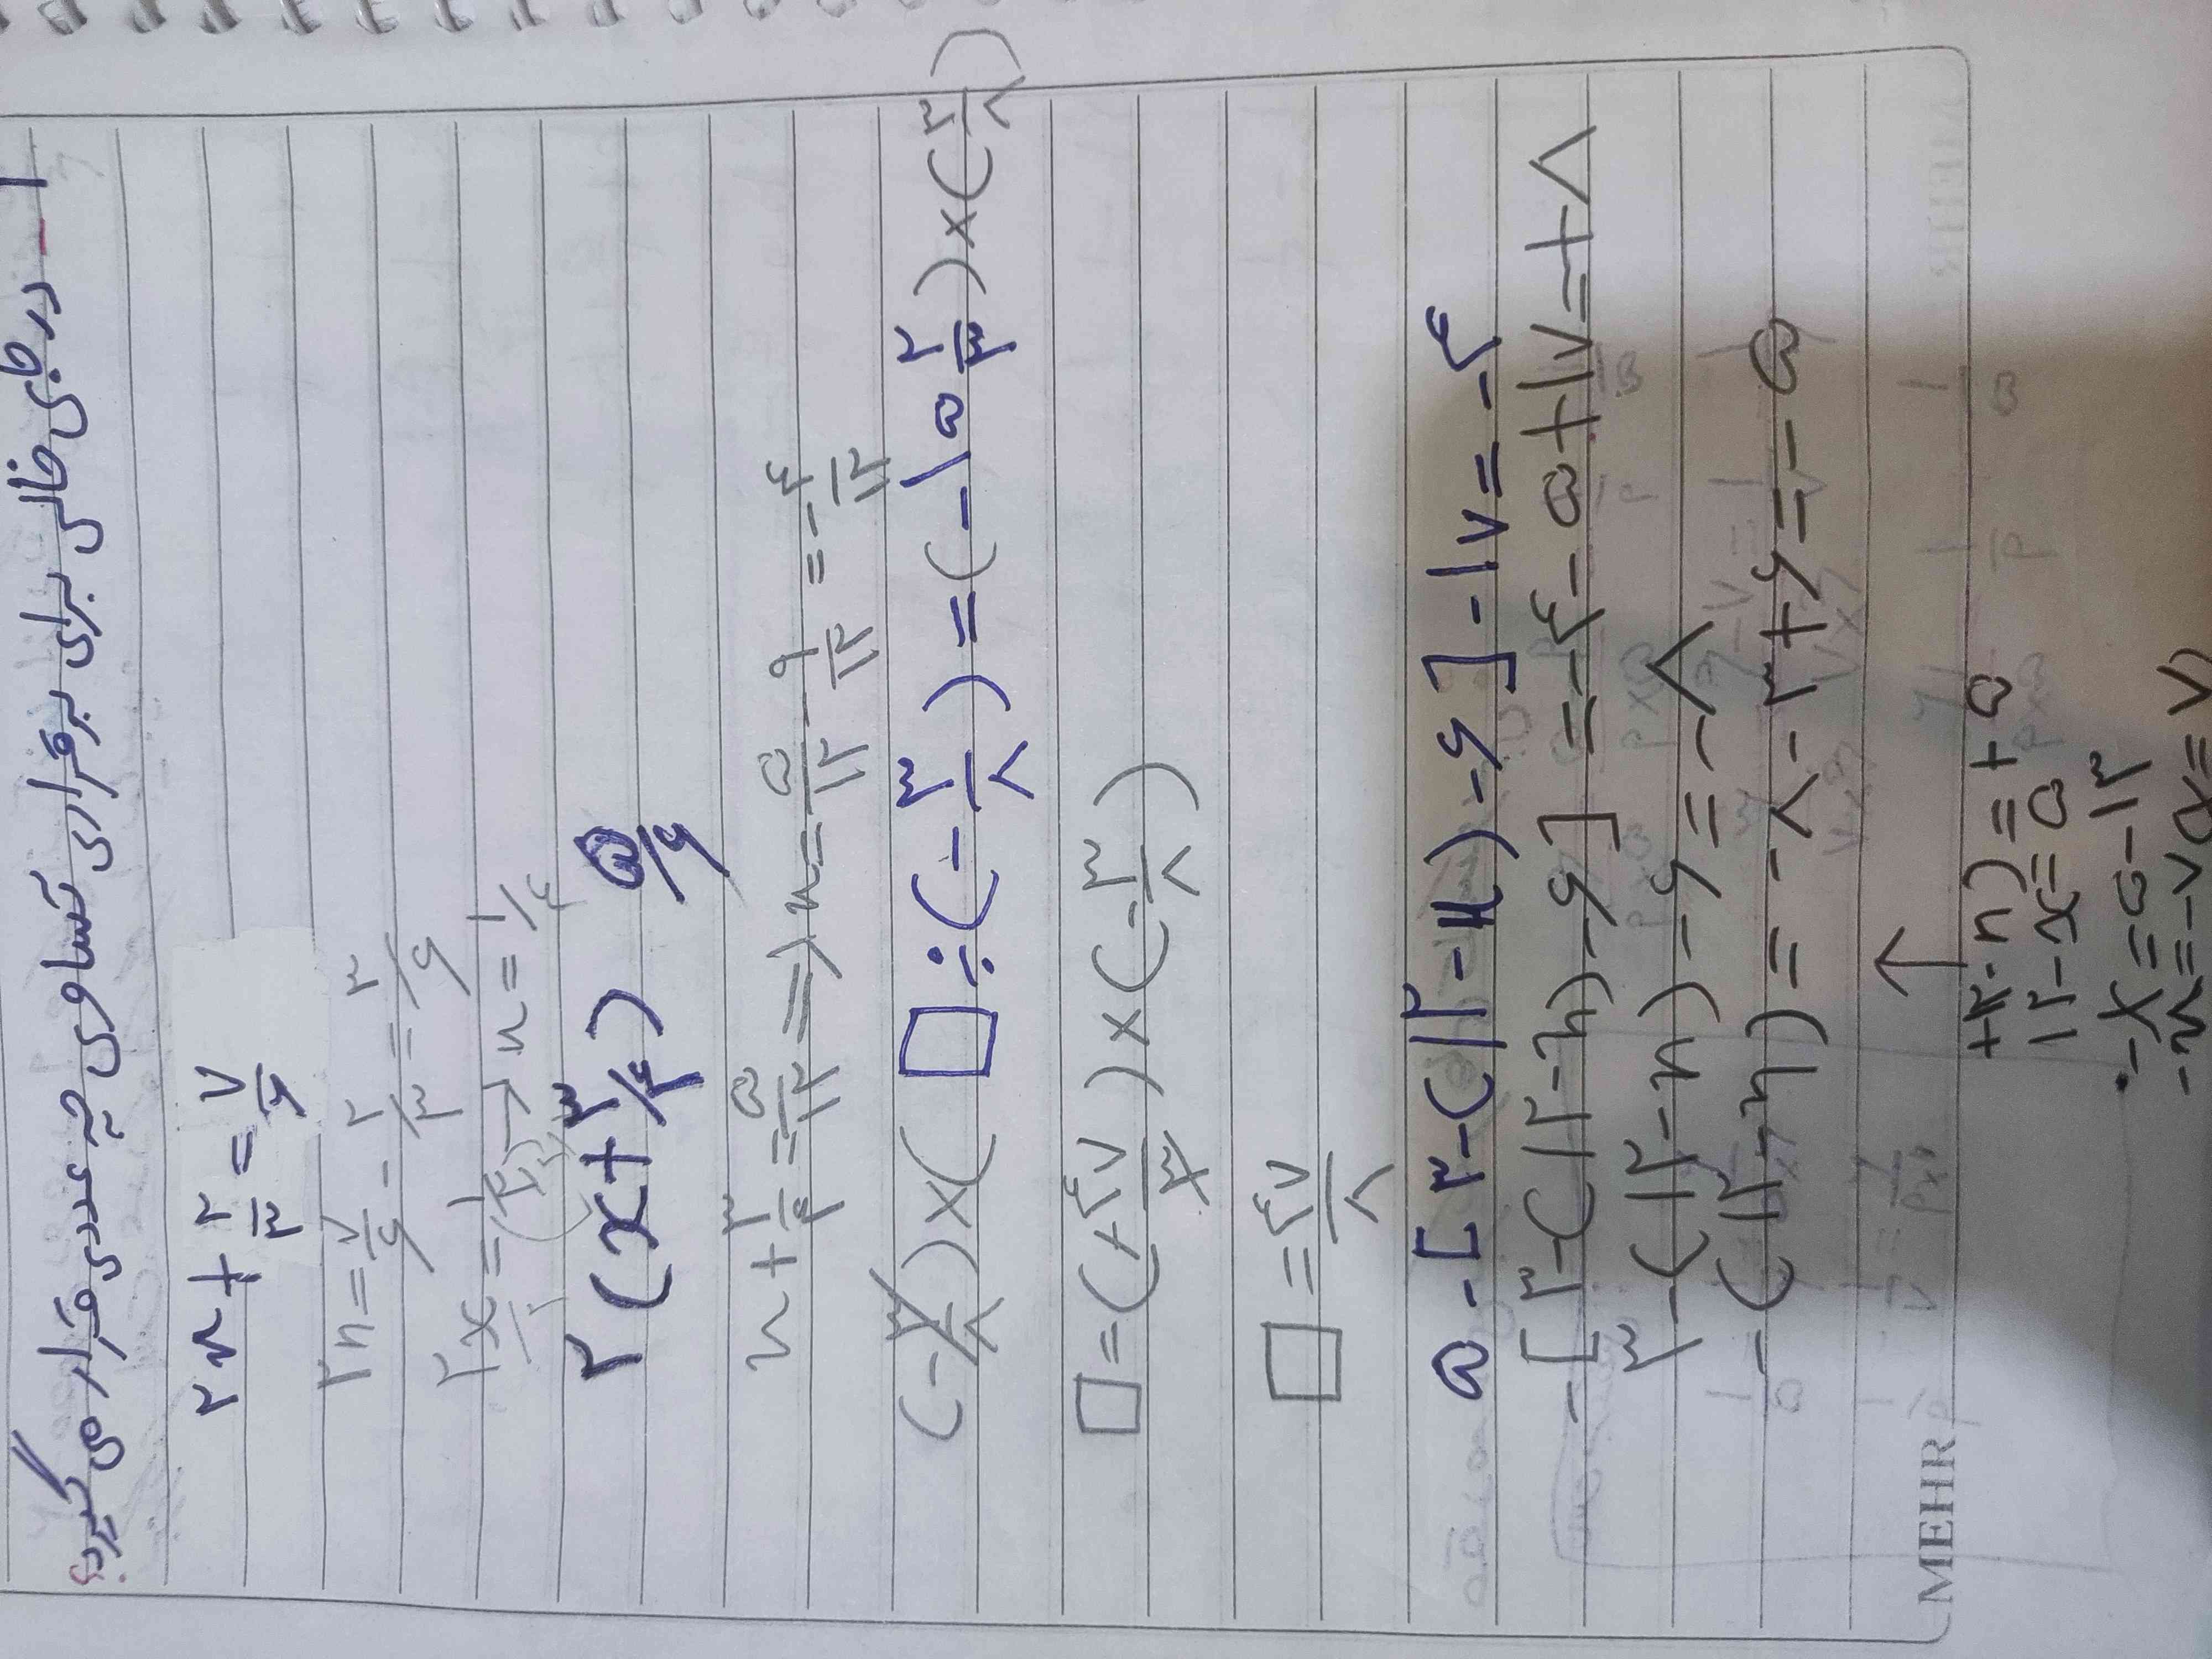 ۱ - در جای خالی برای برقراری تساوی چه عددی قرار می گیرد؟
۲x + ۲/۳ = ۷/۶
۲x = ۷/۶ - ۲/۳ = ۳/۶
x = ۱/۴
۲(x + ۳/۴) ۵/۶
x + ۳/۴ = ۵/۱۲ ⇒ x = ۵/۱۲ - ۹/۱۲ = -۴/۱۲
(-۳/۸) × (□ ÷ (-۳/۸) = (-۱۵ ۲/۳) × (۳/۸)
□ = (+۴۷/۳) × (-۳/۸)
□ = ۴۷/۸
۵ - [۳ - (۱۲ - x) - ۶] - ۱۷ = -۴
-[۳ - (۱۲ - x) - ۶] = -۴ - ۵ + ۱۷ = +۸
۳ - (۱۲ - x) - ۶ = -۸
-(۱۲ - x) = -۸ - ۳ + ۶ = -۵
۱۲ - x = ۵
-x = ۵ - ۱۲
-x = -۷
MEHR